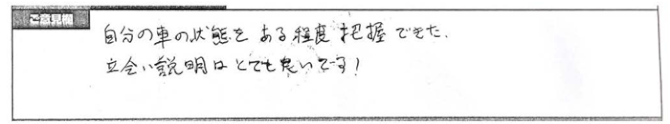 ご意見欄
自分の車の状態を ある程度 把握 できた.
立会い説明は とても良いです!